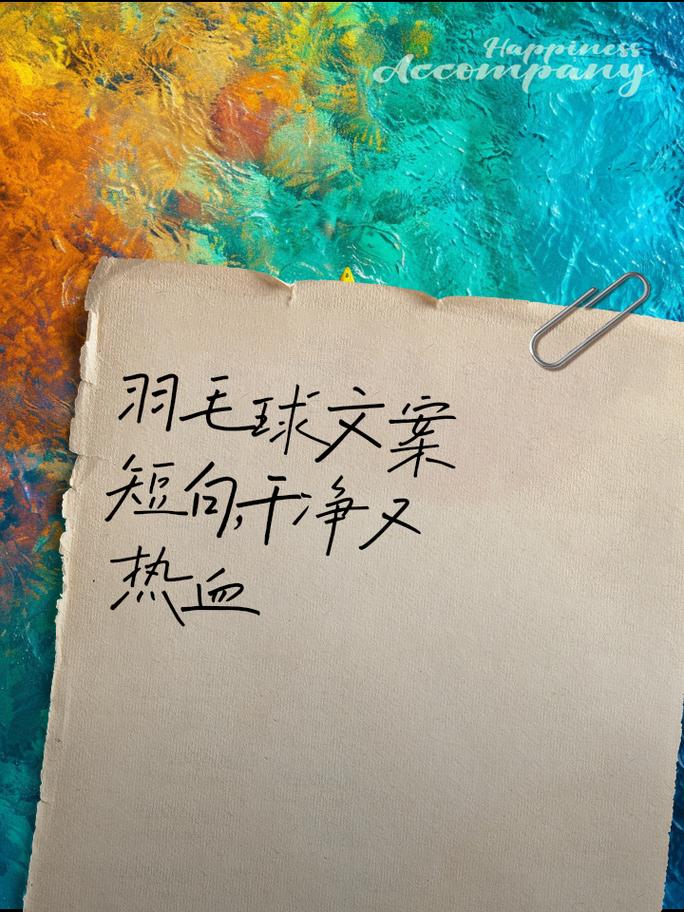 Happiness
Accompany
羽毛球文案
短句,干净又
热血